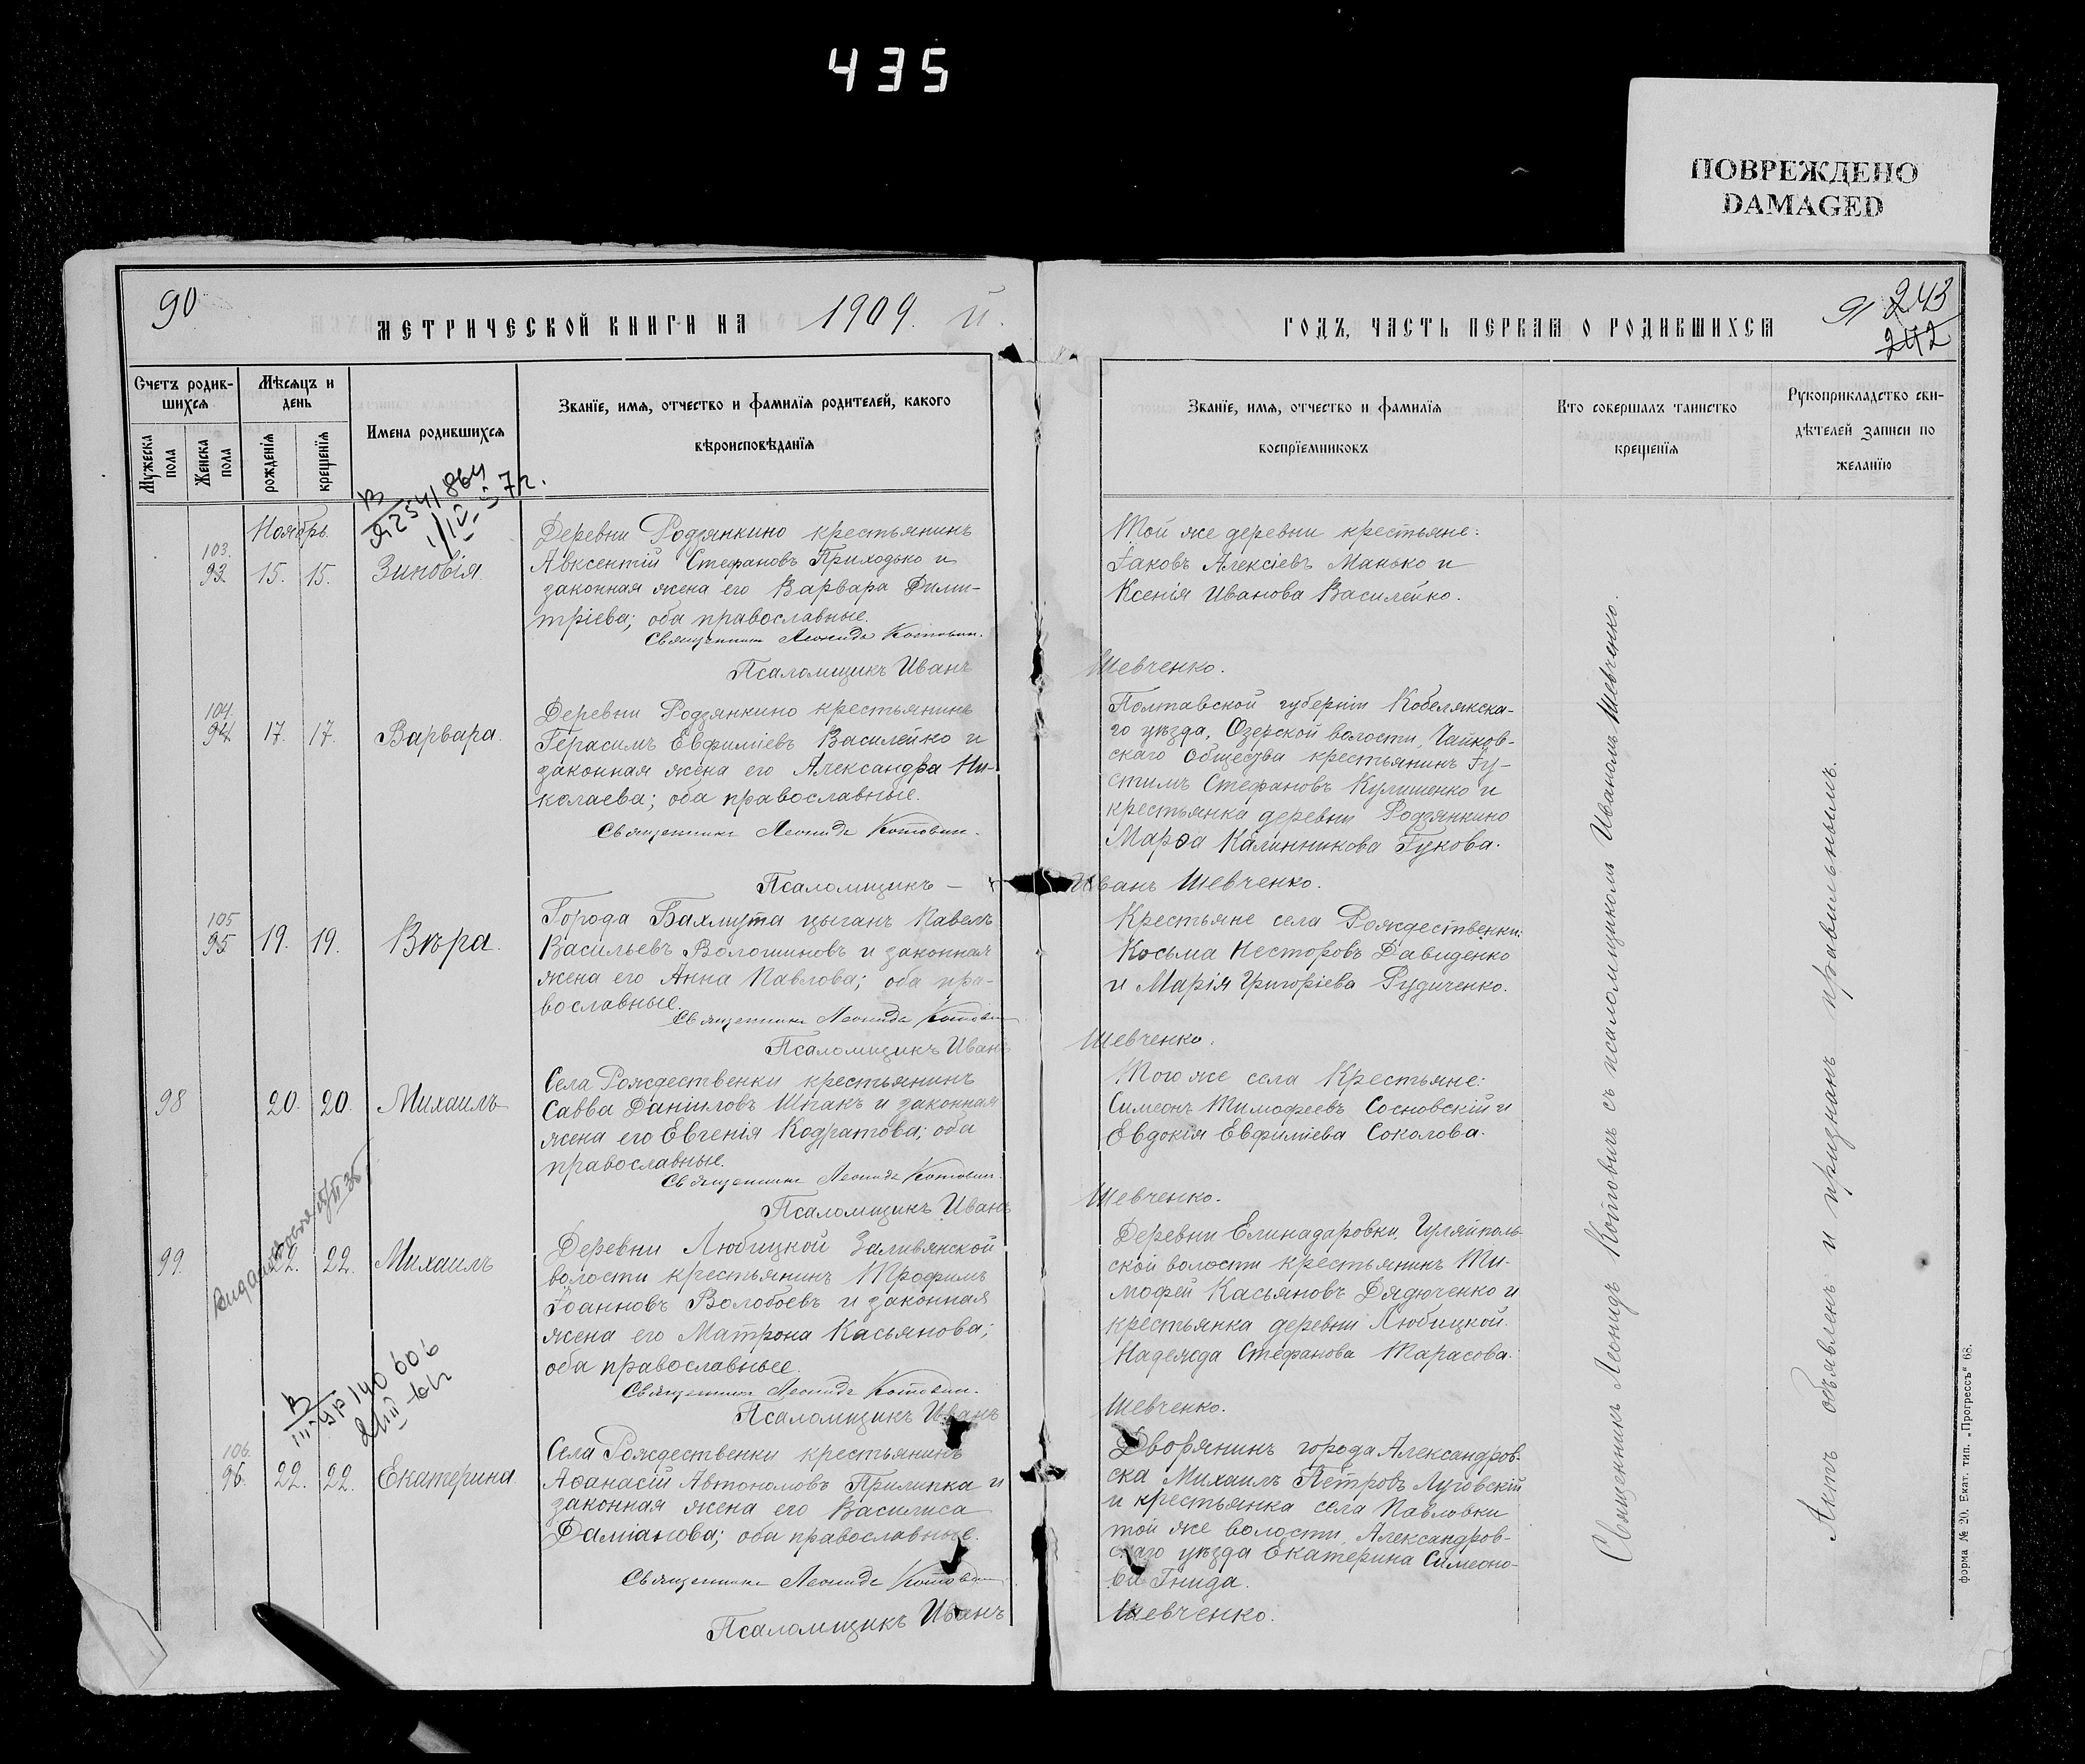 435
ПОВРЕЖДЕНО
DAMAGED
90
МЕТРИЧЕСКОЙ КНИГИ НА 1909 й.
Счетъ родив-
шихся
Мѣсяцъ и
день
Мужеска
пола
Женска
пола
рожденїя
крещенїя
Имена родившихся
Званїе, имя, отчество и фамилїя родителей, какого
вѣроисповѣданїя
Ноябрь.
103.
93 15. 15. Зиновія.
Деревни Родзянкино крестьянинъ
Авксентій Стефановъ Приходько и
законная жена его Варвара Дими-
тріева; оба православные.
Священникъ Леонидъ Котович.
Псаломщикъ Иванъ
104.
94 17. 17. Варвара.
Деревни Родзянкино крестьянинъ
Герасимъ Евфиміевъ Василейко и
законная жена его Александра Ни-
колаева; оба православные.
Священникъ Леонидъ Котович.
Псаломщикъ —
105
95 19. 19. Вѣра.
Города Бахмута цыганъ Павелъ
Васильевъ Волошиновъ и законная
жена его Анна Павлова; оба пра-
вославные.
Священникъ Леонидъ Котович
Псаломщикъ Иванъ
98 20. 20. Михаилъ
Села Рождественки крестьянинъ
Савва Даніиловъ Шпакъ и законная
жена его Евгенія Кодратова; оба
православные.
Священникъ Леонидъ Котович.
Псаломщикъ Иванъ
99. 22. 22. Михаилъ
Деревни Любицкой Заливянской
волости крестьянинъ Трофимъ
Іоанновъ Волобоевъ и законная
жена его Матрона Касьянова;
оба православные.
Священникъ Леонидъ Котович.
Псаломщикъ Иванъ
106.
96. 22. 22. Екатерина.
Села Рождественки крестьянинъ
Аѳанасій Автономовъ Прилипка и
законная жена его Василиса
Даміанова; оба православные.
Священникъ Леонидъ Котович
Псаломщикъ Иванъ
ГОДЪ, ЧАСТЬ ПЕРВАЯ О РОДИВШИХСЯ
91 243
242
Званїе, имя, отчество и фамилїя
воспрїемниковъ
Кто совершалъ таинство
крещенїя
Рукоприкладство сви-
дѣтелей записи по
желанїю
Той же деревни крестьяне:
Іаковъ Алексіевъ Манько и
Ксенія Иванова Василейко.
Шевченко.
Полтавской губерніи Кобелякска-
го уѣзда, Озерской волости, Чайков-
скаго общества крестьянинъ Іу-
стимъ Стефановъ Кулишенко и
крестьянка деревни Родзянкино
Марѳа Калинникова Гукова.
Иванъ Шевченко.
Крестьяне села Рождественки:
Косьма Несторовъ Давиденко
и Марія Григоріева Рудиченко.
Шевченко.
Того же села крестьяне:
Симеонъ Тимофеевъ Сосновскій и
Евдокія Евфиміева Соколова.
Шевченко.
Деревни Елинадаровки, Гуляйполь-
ской волости крестьянинъ Ти-
мофей Касьяновъ Дядюченко и
крестьянка деревни Любицкой
Надежда Стефанова Тарасова.
Шевченко.
Дворянинъ города Александров-
ска Михаилъ Петровъ Луговскій
и крестьянка села Павловки
той же волости, Александров-
скаго уѣзда Екатерина Симеоно-
ва Гнида.
Шевченко.
Священникъ Леонидъ Котовичъ съ псаломщикомъ Иваномъ Шевченко.
Актъ объявленъ и признанъ правильнымъ.
форма № 20. Екат. тип. „Прогрессъ" 68.